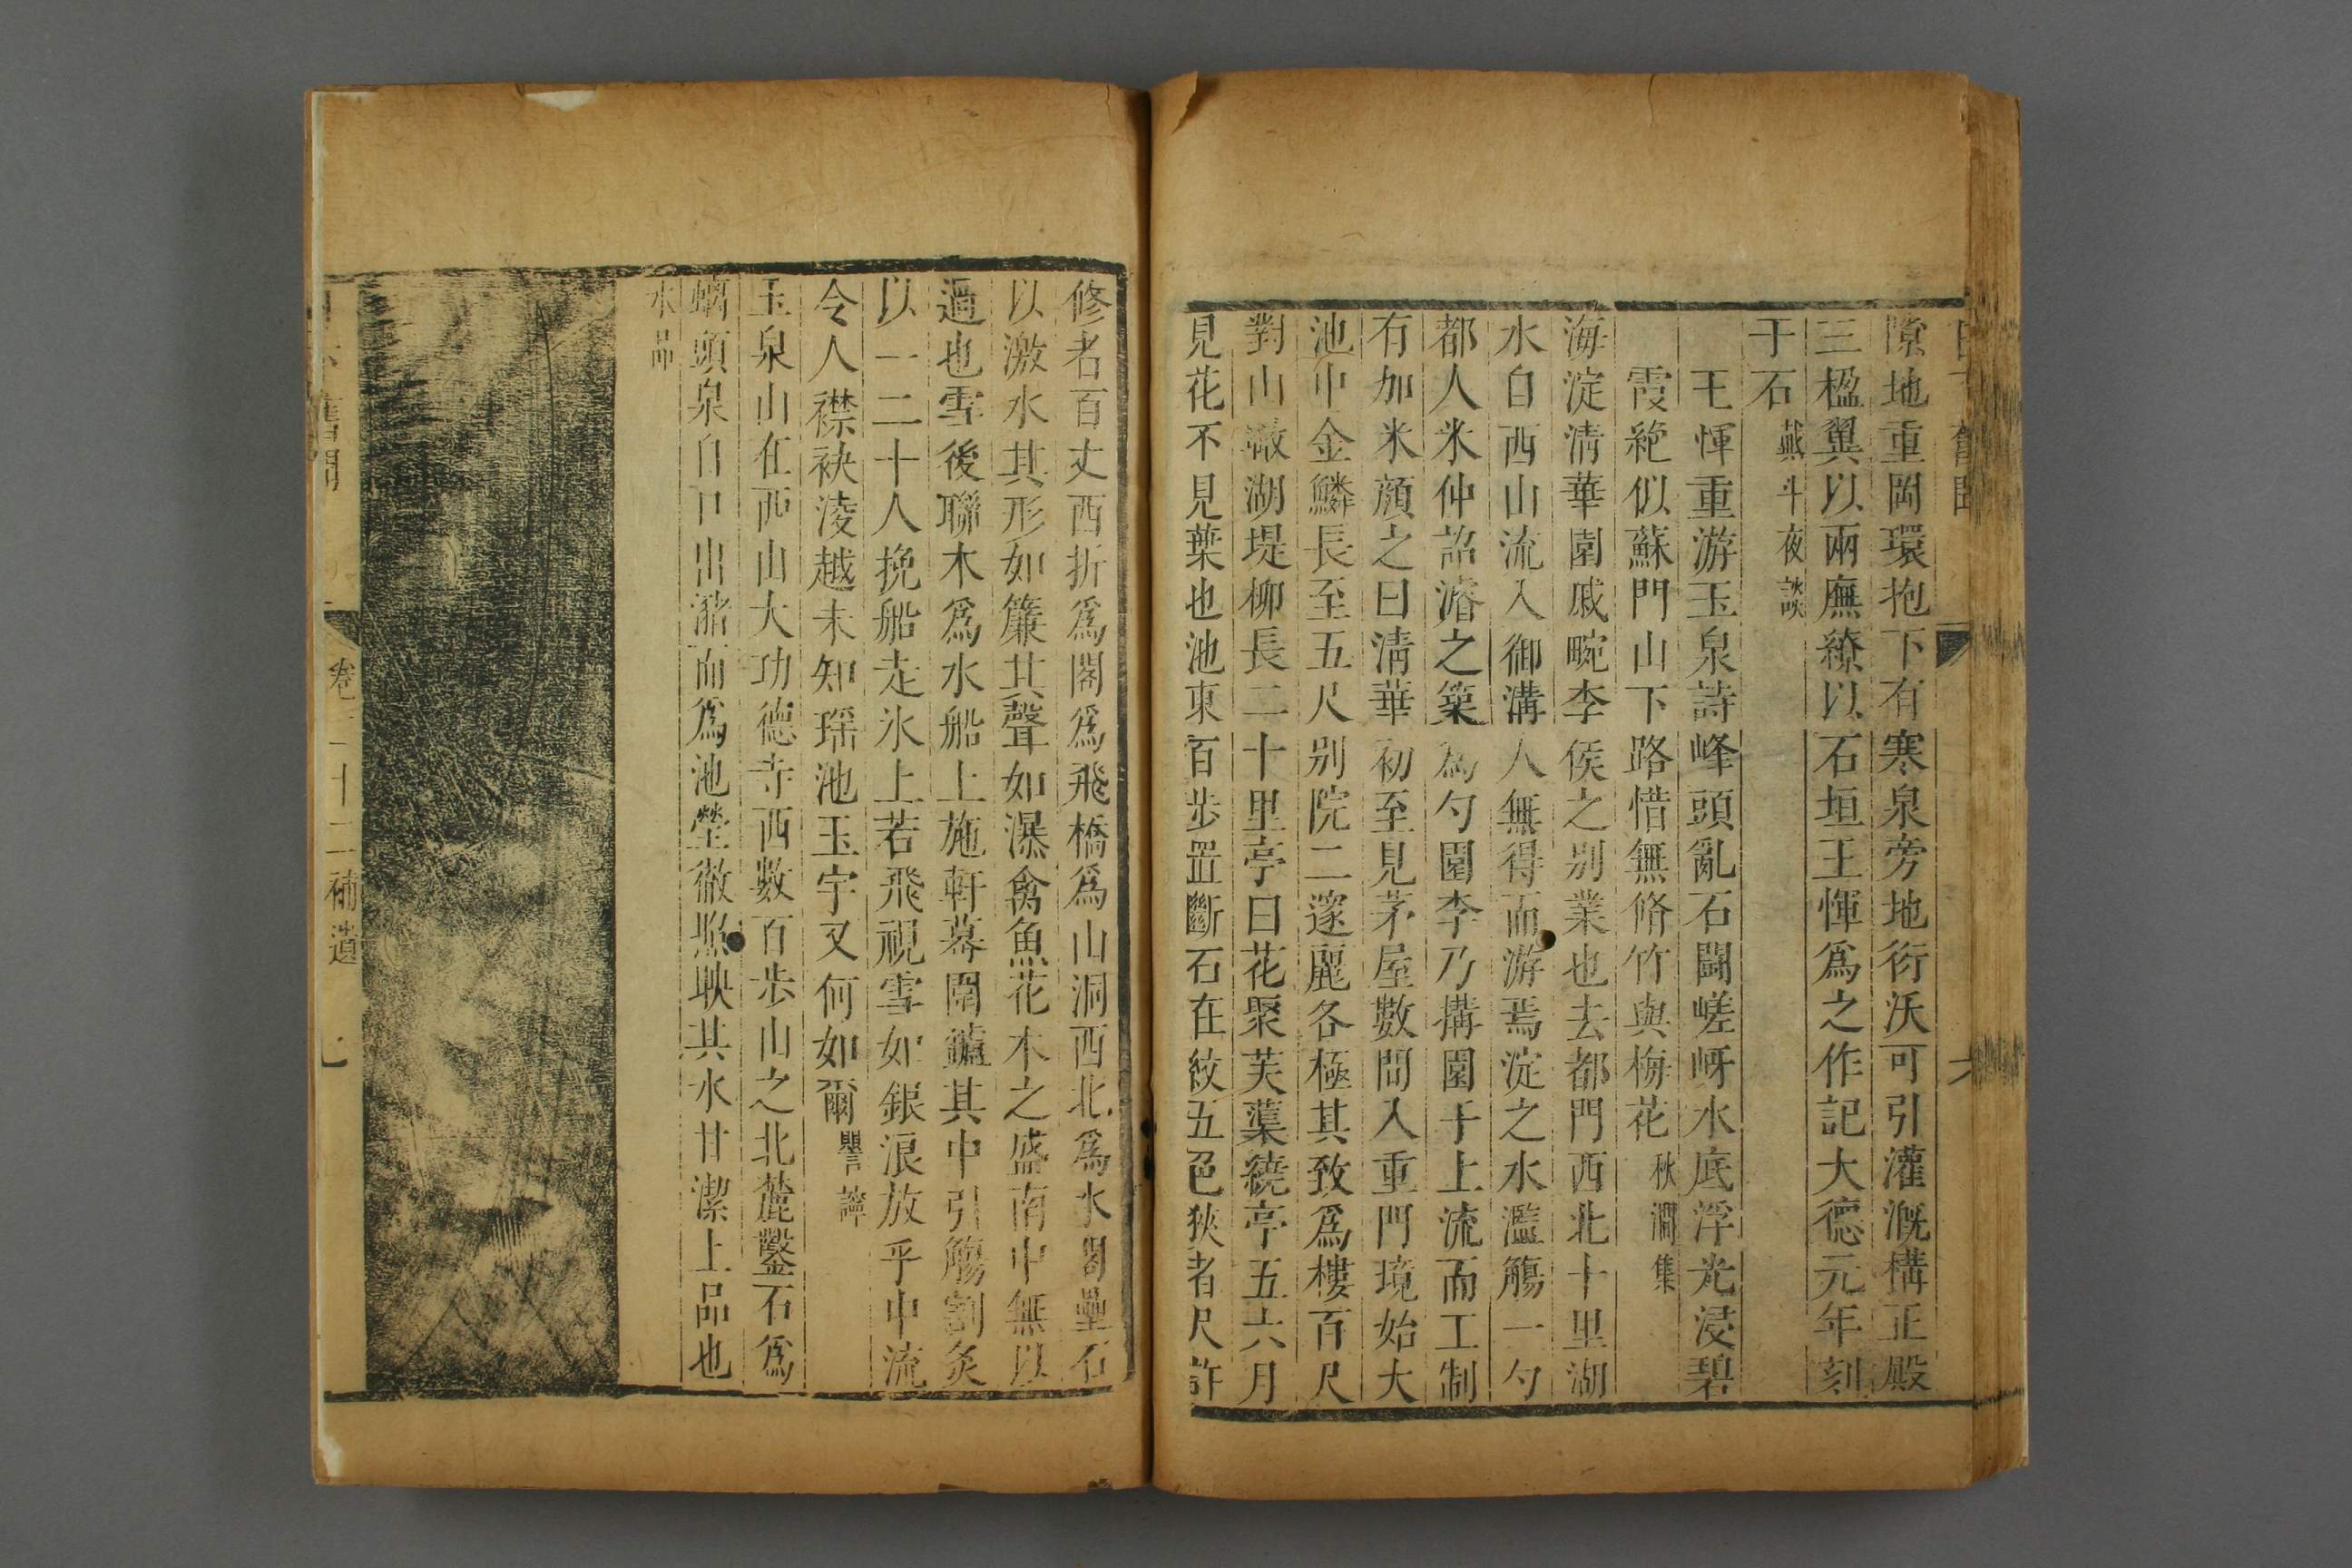 隙地重岡環抱下有寒泉旁地衍沃可引灌漑構正殿
三楹翼以兩廡繚以石垣王惲爲之作記大德元年刻
于石戴斗夜談
王惲重游玉泉詩峰頭亂石鬭嵯岈水底浮光浸碧
霞絶似蘇門山下路惜無脩竹與梅花秋澗集
海淀淸華園戚畹李侯之别業也去都門西北十里湖
水自西山流入御溝人無得而游焉淀之水濫觴一勺
都人米仲詔濬之築爲勺園李乃搆園于上流而工制
有加米顔之曰淸華初至見茅屋數間入重門境始大
池中金鱗長至五尺别院二邃麗各極其致爲樓百尺
對山瞰湖堤柳長二十里亭曰花聚芙蕖繞亭五六月
見花不見葉也池東百步置斷石在紋五色狹者尺許
修者百丈西折爲閣爲飛橋爲山洞西北爲水閣壘石
以激水其形如簾其聲如瀑禽魚花木之盛南中無以
過也雪後聯木爲水船上施軒幕圍爐其中引觴割炙
以一二十人挽船走氷上若飛視雪如銀浪放乎中流
令人襟袂淩越未知瑶池玉宇又何如爾
玉泉山在西山大功德寺西數百步山之北麓鑿石爲
螭頭泉自口出瀦而爲池瑩徹照映其水甘潔上品也
水品
舊聞 卷二十二補遺 七